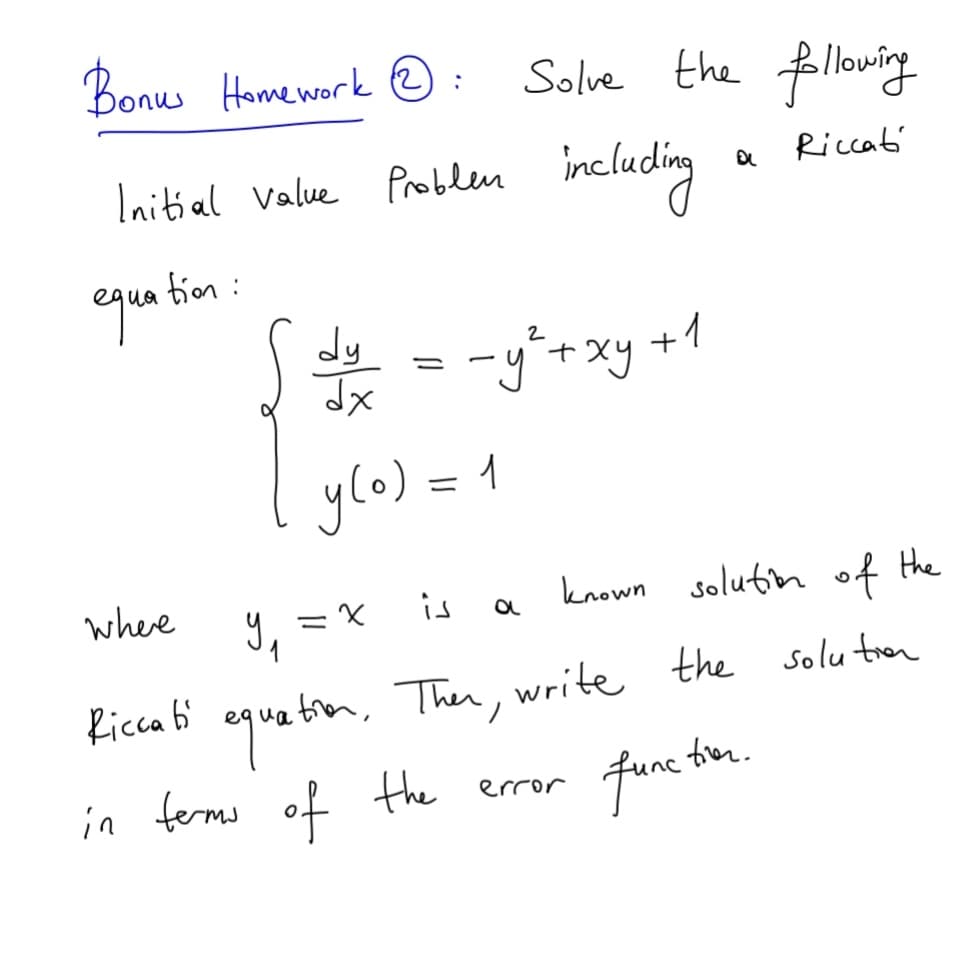 Bonus Homework ②: Solve the following
Initial Value Problem including a Riccati
equation:
dy/dx = -y² + xy + 1
y(0) = 1
where y₁ = x is a known solution of the
Riccati equation. Then, write the solution
in terms of the error function.